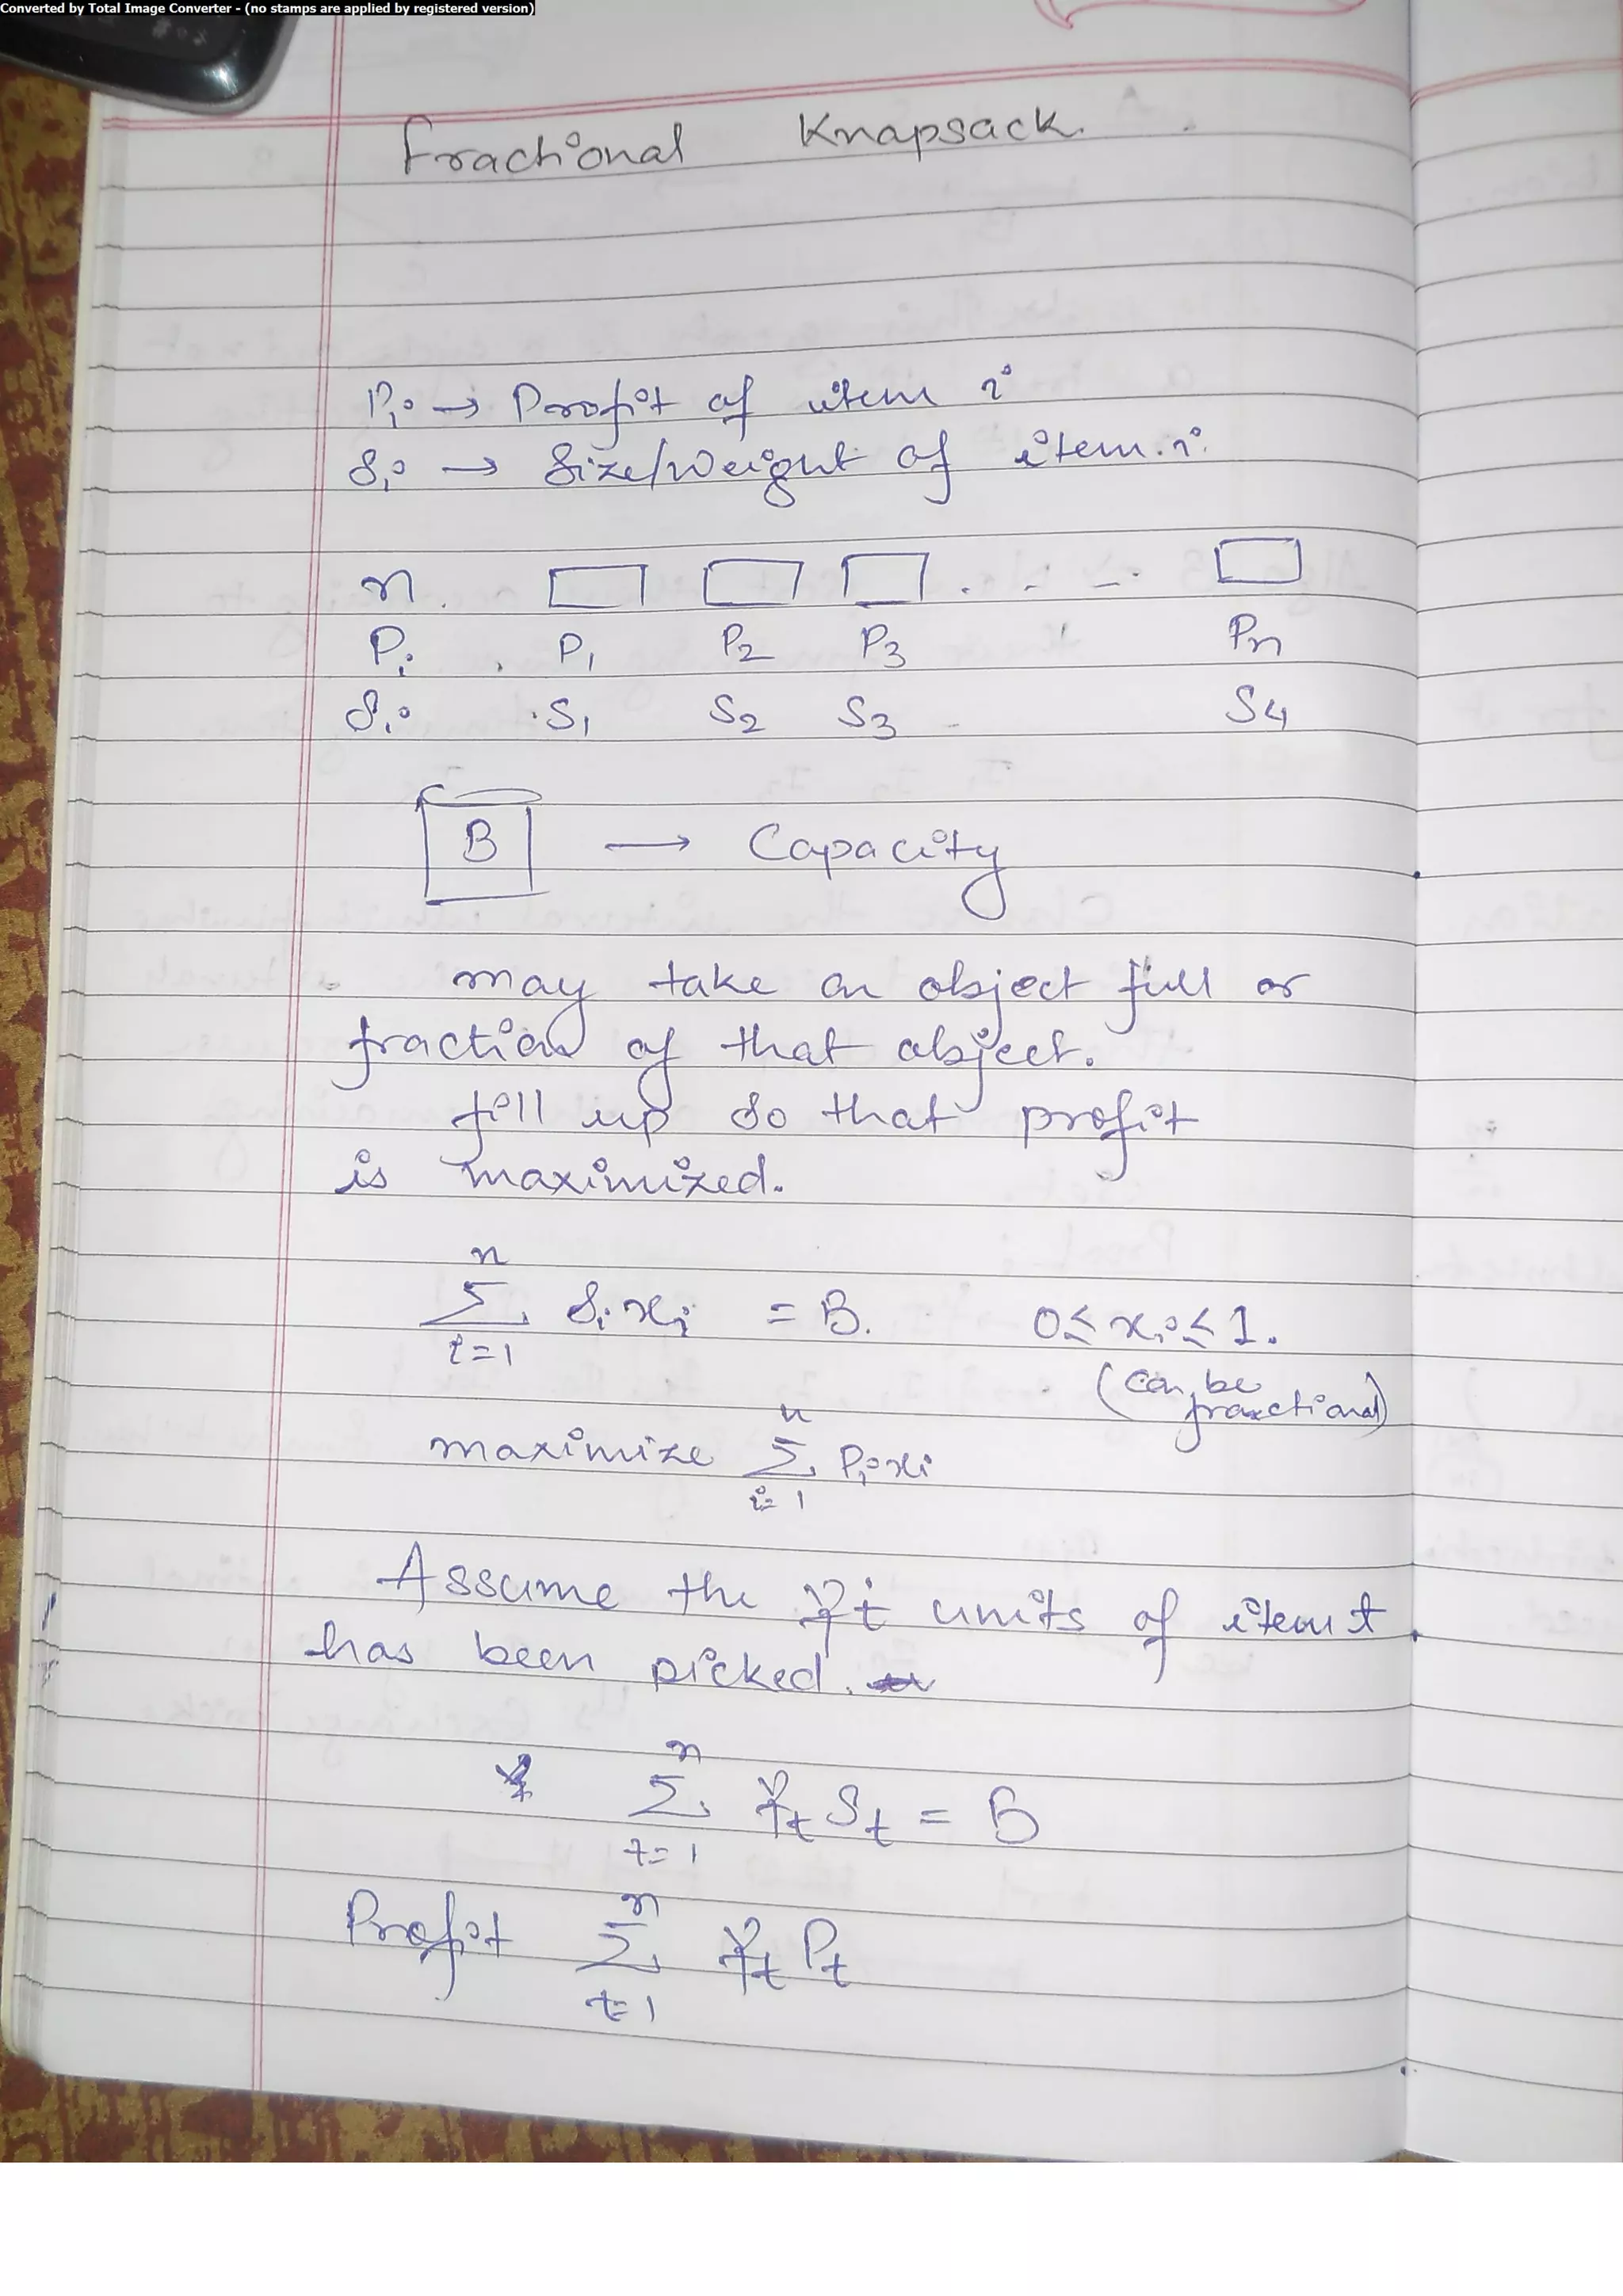 Converted by Total Image Converter - (no stamps are applied by registered version)
Fractional Knapsack.
Pi → Profit of item i
Si → Size/Weight of item i.
n . . . .
Pi P1 P2 P3 Pn
Si S1 S2 S3 - S4
B → Capacity
may take an object full or
fraction of that object.
fill up so that profit
is maximized.
n
Σ Si xi = B. 0 ≤ xi ≤ 1.
i=1
(can be
fractional)
n
maximize Σ Pi xi
i=1
Assume the γt units of item t
has been picked.
n
Σ γt St = B
t=1
n
Profit Σ γt Pt
t=1